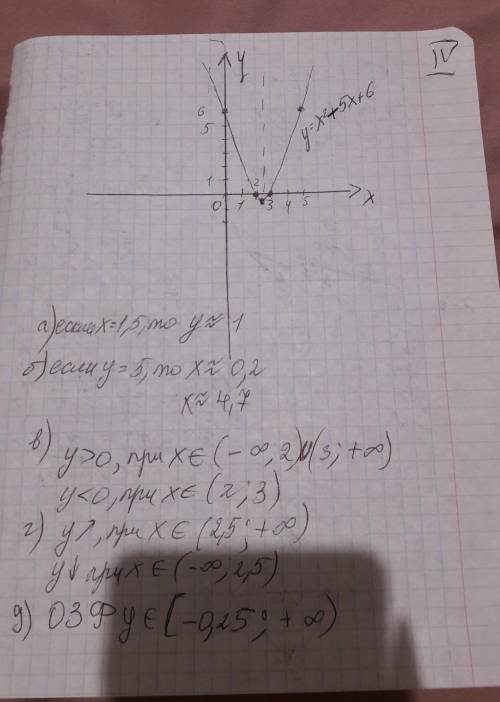 IV
y
y=x²-5x+6
6
5
1
0 1 2 3 4 5 x
а) если x=1,5, то y≈1
б) если y=5, то x≈0,2
x≈4,7
в)
y>0, при x∈(-∞,2)∪(3;+∞)
y<0, при x∈(2;3)
г) y↗, при x∈(2,5;+∞)
y↓ при x∈(-∞;2,5)
д) ОЗФ y∈[-0,25;+∞)